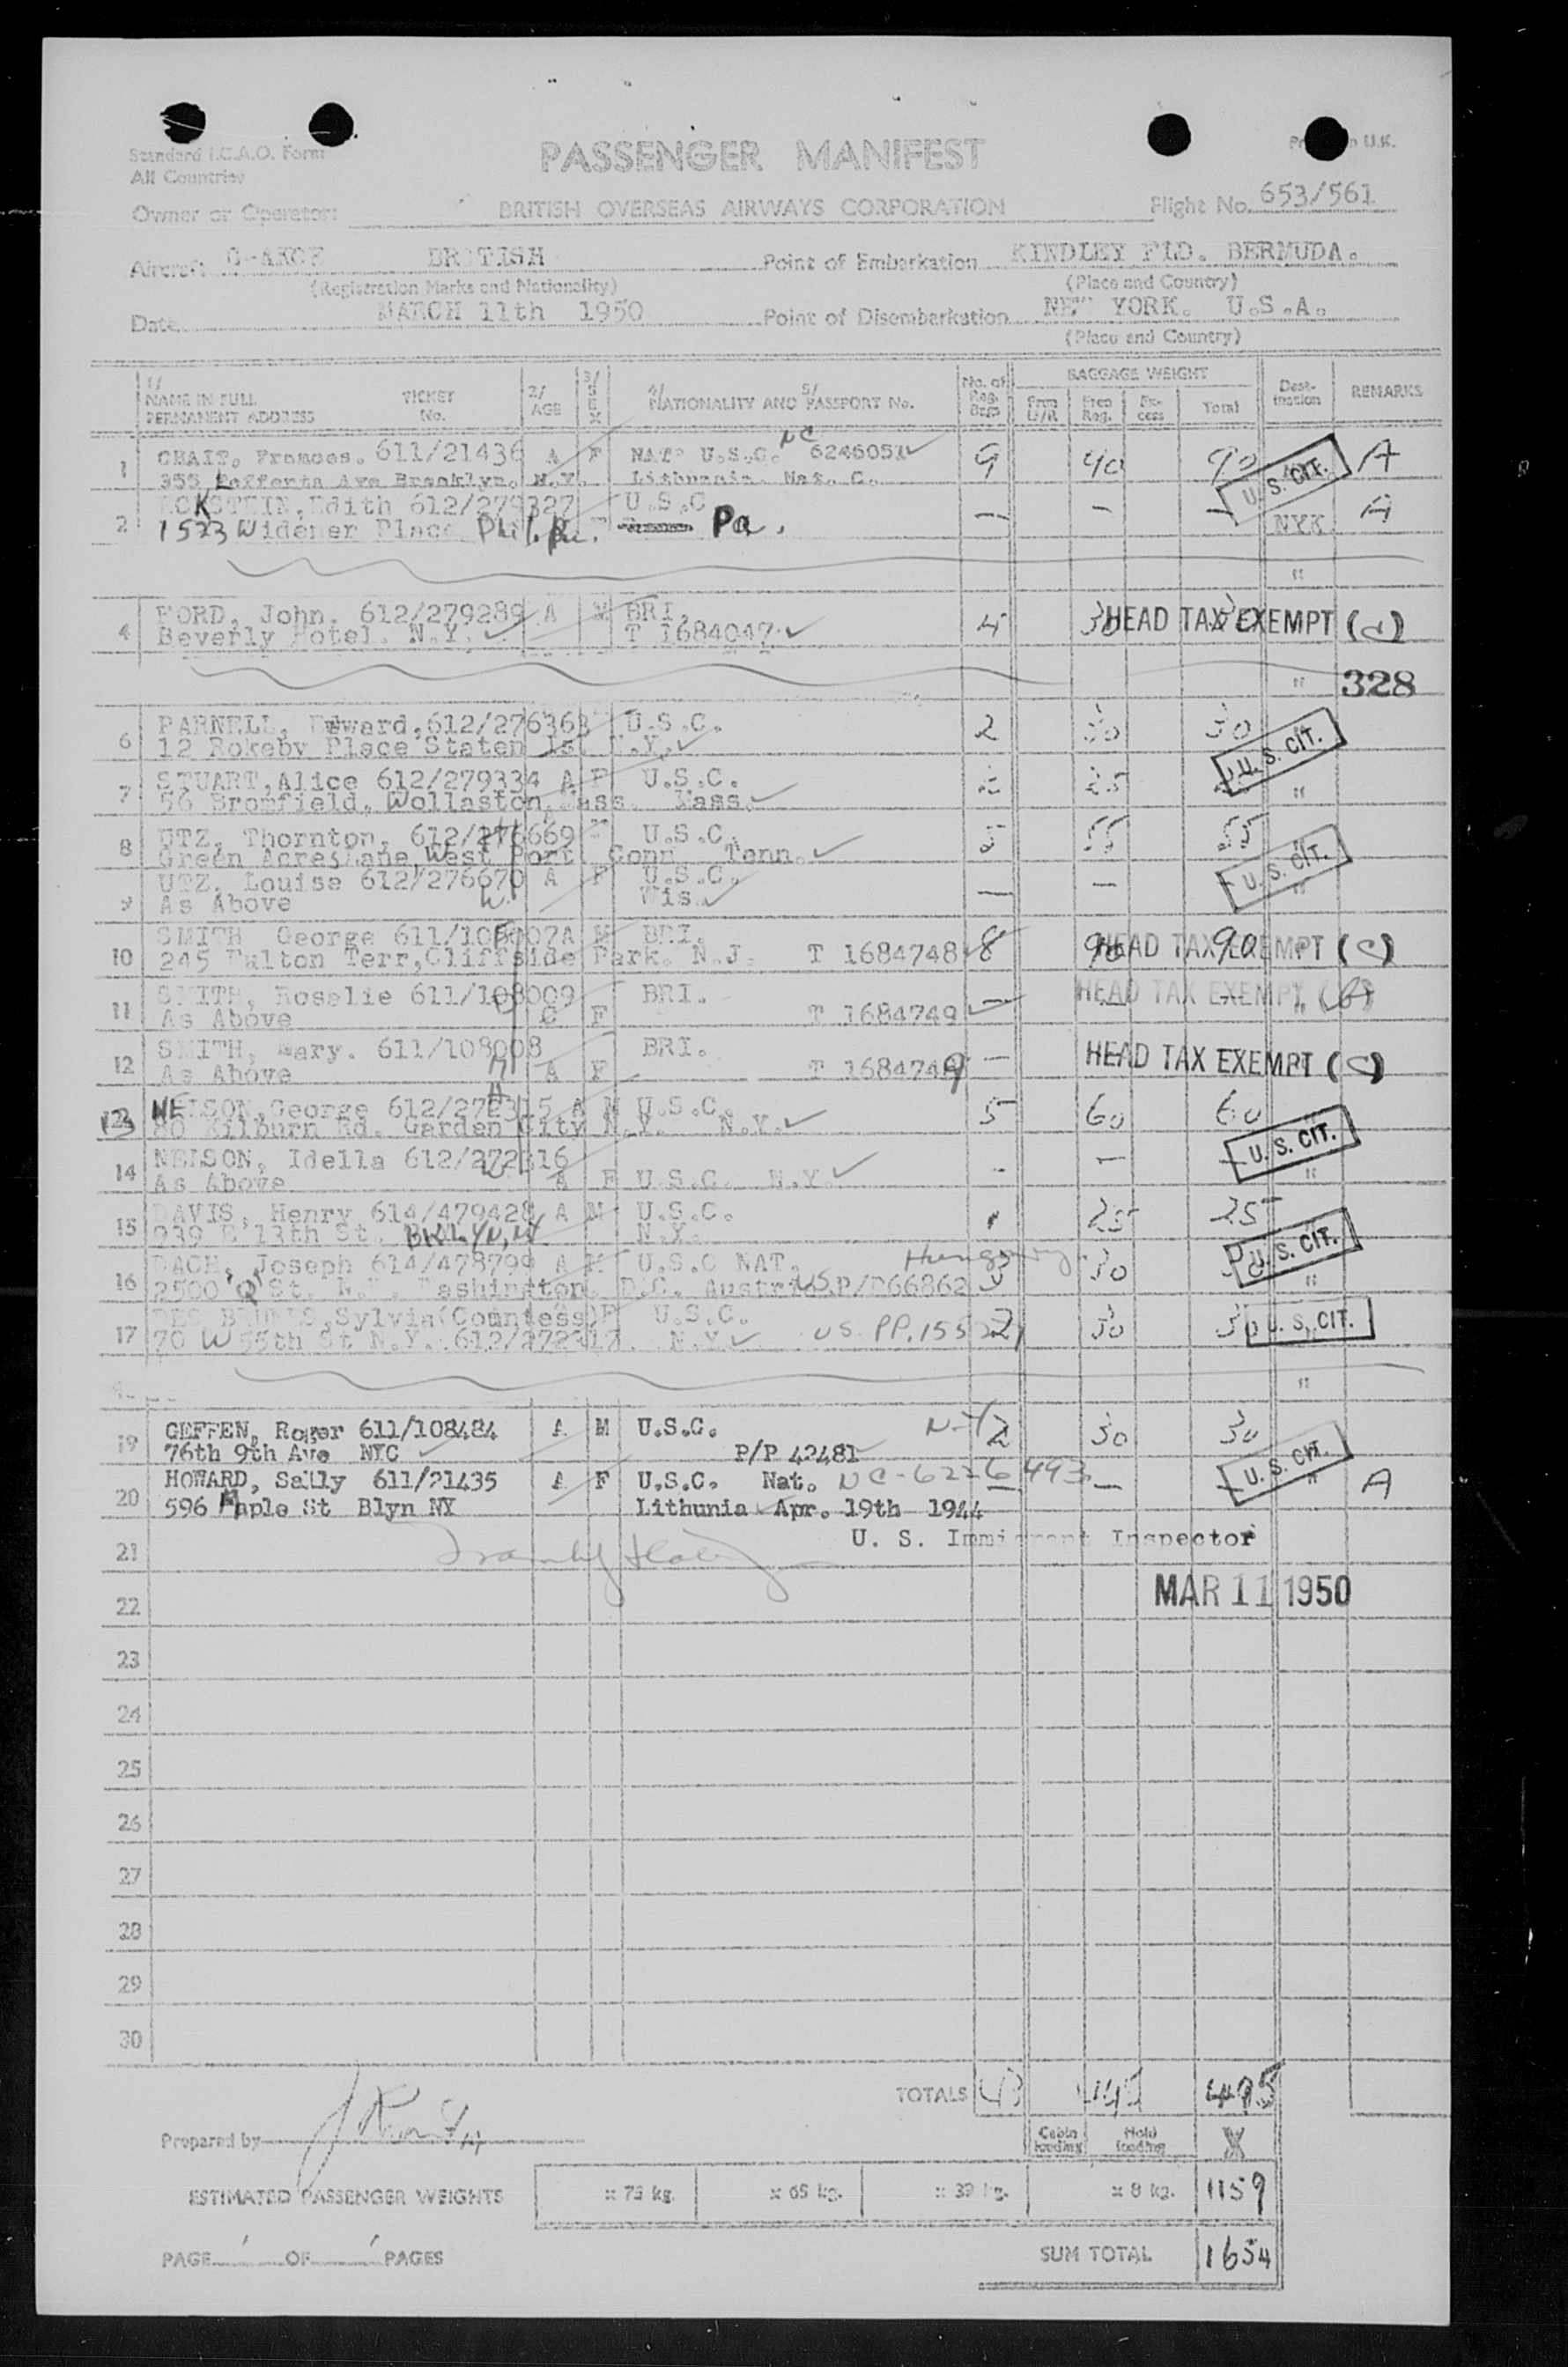 Standard I.C.A.O. Form
All Countries
PASSENGER MANIFEST
U.K.
Owner or Operator: BRITISH OVERSEAS AIRWAYS CORPORATION Flight No. 653/561
Aircraft BRITISH Point of Embarkation KINDLEY FLD. BERMUDA.
(Registration Marks and Nationality) (Place and Country)
Date MARCH 11th 1950 Point of Disembarkation NEW YORK. U.S.A.
(Place and Country)
1/ NAME IN FULL PERMANENT ADDRESS TICKET No. 2/ AGE 3/ SEX 4/ 5/ NATIONALITY AND PASSPORT No. No. of Reg. Bags BAGGAGE WEIGHT Free Reg. Ex-cess Total Dest-ination REMARKS
1 CHAIT, Frances. 611/21436 A F NAT. U.S.C. NC 6246051 9 90 90 U.S. CIT. A
355 Lefferts Ave Brooklyn. N.Y. Lithunnia. Nat. C.
2 Edith 612/279327 U.S.C — — — NYK A
1523 Widener Place Phil. Pa.
"
4 FORD, John. 612/279289 A M BRI. 4 30 HEAD TAX EXEMPT (d)
Beverly Hotel. N.Y. T 1684047
" 328
6 PARNELL, Edward, 612/276363 U.S.C. 2 30 30 U.S. CIT.
12 Rokeby Place Staten Is. N.Y.
7 STUART, Alice 612/279334 A F U.S.C. 2 25 "
56 Bromfield, Wollaston. Mass. Mass.
8 UTZ, Thornton, 612/276669 U.S.C. 5 55 55 U.S. CIT.
Green Acres Lane, West Port. Conn Tenn.
9 UTZ, Louise 612/276670 A F U.S.C. — — "
As Above Wis.
10 SMITH George 611/108007 A M BRI. 8 90 90 HEAD TAX EXEMPT (C)
245 Palton Terr, Cliffside Park. N.J. T 1684748
11 SMITH, Rosalie 611/108009 C F BRI. — HEAD TAX EXEMPT
As Above T 1684749
12 SMITH, Mary. 611/108008 A F BRI. — HEAD TAX EXEMPT (C)
As Above T 1684749
13 NELSON, George 612/272315 A M U.S.C. 5 60 60 U.S. CIT.
80 Kilburn Rd. Garden City N.Y. N.Y.
14 NELSON, Idella 612/272316 A F U.S.C. N.Y. - — — "
As Above
15 DAVIS, Henry 614/479428 A M U.S.C. 1 25 25 U.S. CIT.
939 E 13th St. BKLYN, NY N.Y.
16 DACH, Joseph 614/478799 A M U.S.C NAT. Hungary 30 "
2500 'Q' St. N.W. Washington. D.C. Austria U.S. P/P 66862
17 Sylvia (Countess) F U.S.C. 2 30 30 U.S. CIT.
70 W 55th St N.Y. 612/272317 N.Y. US. PP.
"
19 GEFFEN, Roger 611/108484 A M U.S.C. N-Y 2 30 30 U.S. CIT.
76th 9th Ave NYC P/P 42481
20 HOWARD, Sally 611/21435 A F U.S.C. Nat. NC-6226493 — — — " A
596 Maple St Blyn NY Lithunia Apr. 19th 1944
21 U. S. Immigrant Inspector
22 MAR 11 1950
23
24
25
26
27
28
29
30
TOTALS 43 495
Prepared by Cabin loading Hold loading X
ESTIMATED PASSENGER WEIGHTS x 75 kg. x 65 kg. x 39 kg. x 8 kg. 1159
PAGE 1 OF 1 PAGES SUM TOTAL 1654